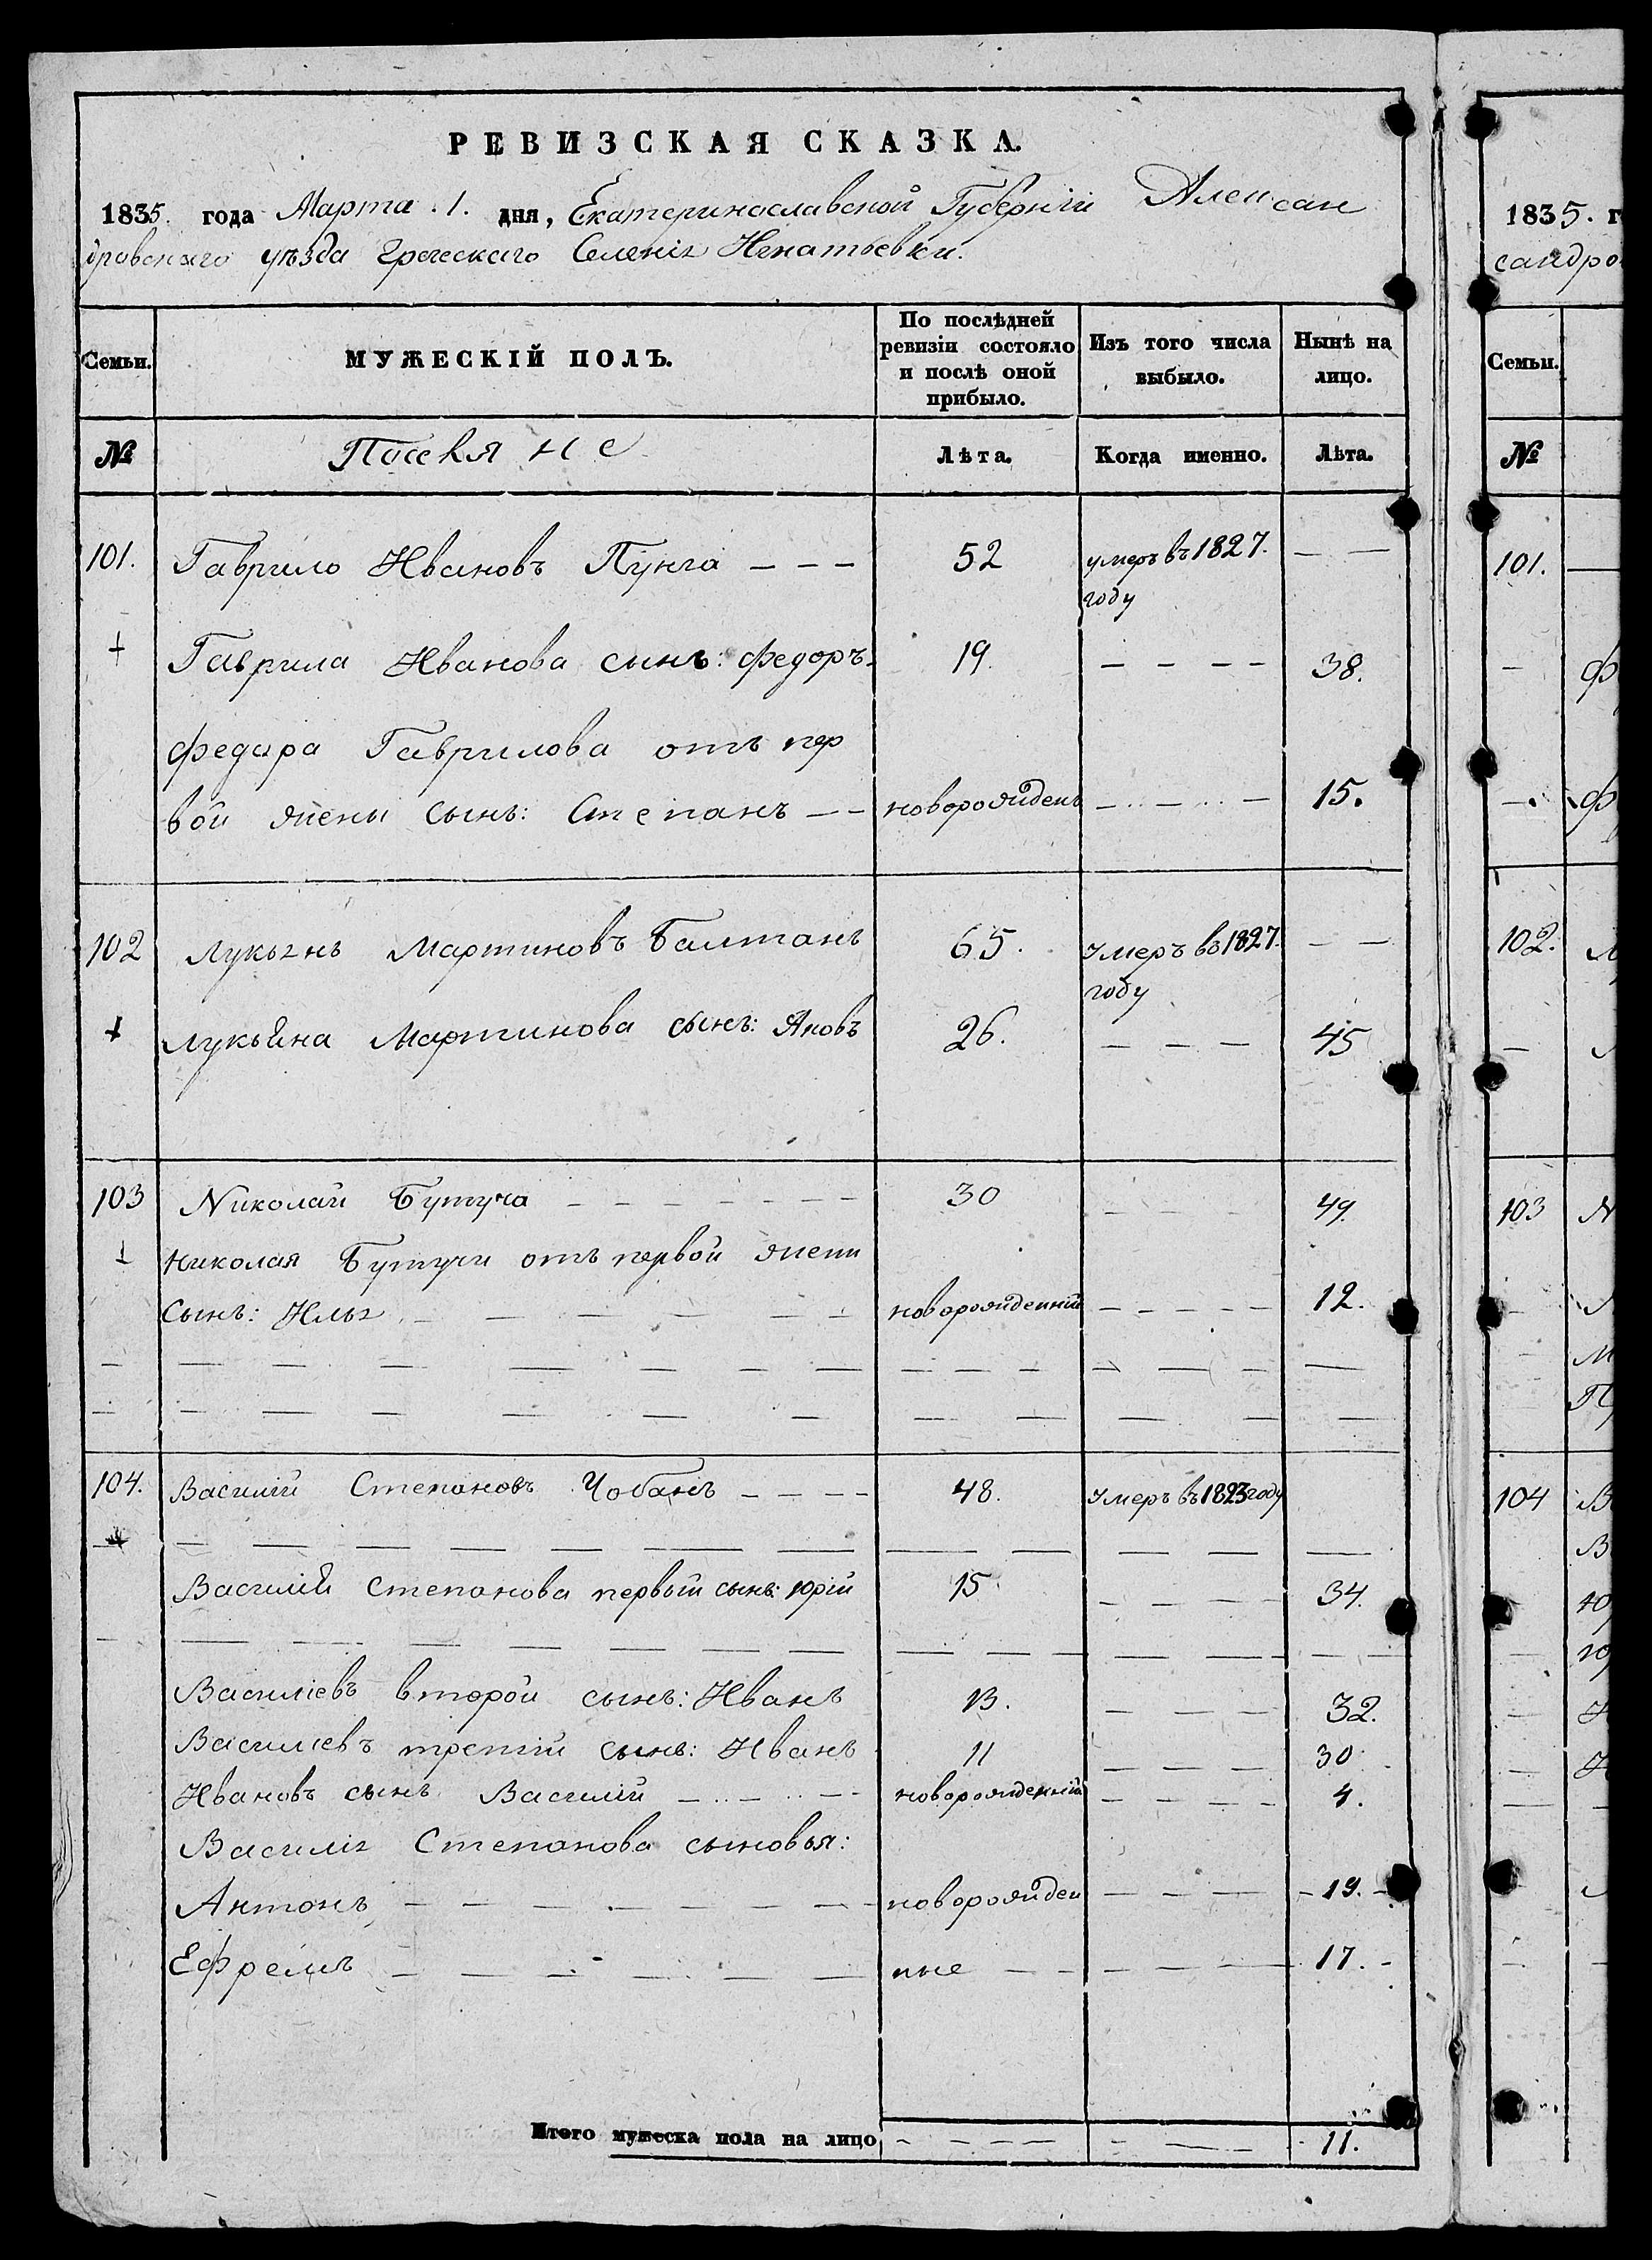 РЕВИЗСКАЯ СКАЗКА.
1835. года Марта .1. дня, Екатеринославской Губерніи Алексан
дровскаго уѣзда Греческаго Селенія Игнатьевки.
Семьи. МУЖЕСКІЙ ПОЛЪ. По послѣдней ревизіи состояло и послѣ оной прибыло. Изъ того числа выбыло. Нынѣ на лицо.
№ Поселяне Лѣта. Когда именно. Лѣта.
101. Гаврило Ивановъ Пунга — — — 52 умеръ въ 1827. — —
году
+ Гаврила Иванова сынъ: Федоръ 19. — — — — 38.
Федора Гаврилова отъ пер
вой жены сынъ: Степанъ — — новорожденъ — — — 15.
102 Лукьянъ Мартиновъ Балтанъ 65. умеръ въ 1827. — —
году
+ Лукьяна Мартинова сынъ: Яковъ 26. — — — 45
103 Николай Бутуча — — — — — — 30 — — — — 49.
Николая Бутучи отъ первой жени
Сынъ: Илья — — — — — новорожденній — — — — — 12.
104. Василій Степановъ Чобанъ — — — — 48. умеръ въ 1823 году
Василій Степанова первый сынъ: Юрій 15. — — — — 34.
Василіевъ второй сынъ: Иванъ 13. — — — 32.
Василіевъ третій сынъ: Иванъ 11 — — — 30.
Ивановъ сынъ Василій — — — новорожденній — — — — 4.
Василія Степанова сыновья:
Антонъ — — — — — — — новорожден — — — 19.
Ефремъ — — — — — — ные — — — — — 17.
Итого мужеска пола на лицо — — — — — — — 11.
1835. г
сандро
Семьи.
№
101.
Ф
Ф
102.
103
104